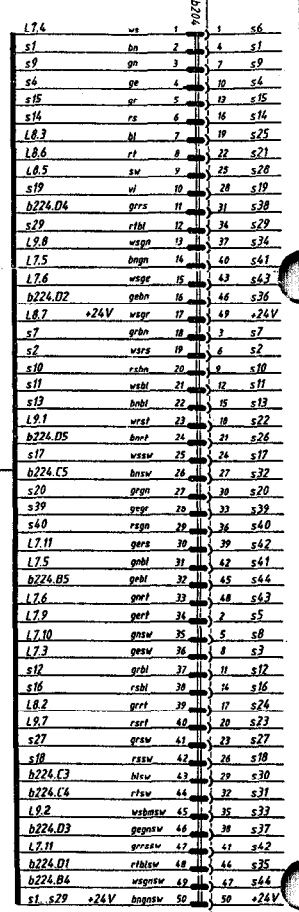 b204
L7.4 ws 1 1 s6
s1 bn 2 4 s1
s9 gn 3 7 s9
s4 ge 4 10 s4
s15 gr 5 13 s15
s14 rs 6 16 s14
L8.3 bl 7 19 s25
L8.6 rt 8 22 s21
L8.5 sw 9 25 s28
s19 vi 10 28 s19
b224.D4 grrs 11 31 s38
s29 rtbl 12 34 s29
L9.8 wsgn 13 37 s34
L7.5 bngn 14 40 s41
L7.6 wsge 15 43 s43
b224.D2 gebn 16 46 s36
L8.7 +24V wsgr 17 49 +24V
s7 grbn 18 3 s7
s2 wsrs 19 6 s2
s10 rsbn 20 9 s10
s11 wsbl 21 12 s11
s13 bnbl 22 15 s13
L9.1 wrst 23 18 s22
b224.D5 bnrt 24 21 s26
s17 wssw 25 24 s17
b224.C5 bnsw 26 27 s32
s20 grgn 27 30 s20
s39 gegr 28 33 s39
s40 rsgn 29 36 s40
L7.11 gers 30 39 s42
L7.5 gnbl 31 42 s41
b224.B5 gebl 32 45 s44
L7.6 gnrt 33 48 s43
L7.9 gert 34 2 s5
L7.10 gnsw 35 5 s8
L7.3 gesw 36 8 s3
s12 grbl 37 11 s12
s16 rsbl 38 14 s16
L8.2 grrt 39 17 s24
L9.7 rsrt 40 20 s23
s27 grsw 41 23 s27
s18 rssw 42 26 s18
b224.C3 blsw 43 29 s30
b224.C4 rtsw 44 32 s31
L9.2 wsbnsw 45 35 s33
b224.D3 gegnsw 46 38 s37
L7.11 grrssw 47 41 s42
b224.D1 rtblsw 48 44 s35
b224.B4 wsgnsw 49 47 s44
s1...s29 +24V bngnsw 50 50 +24V